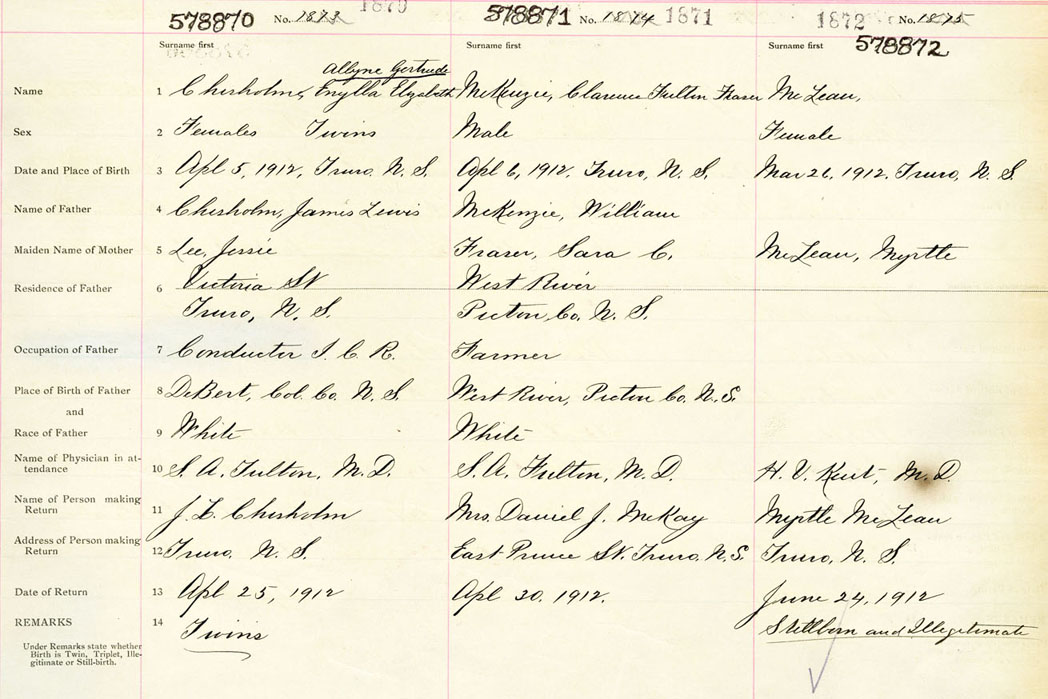 578870 No. 1873 1870 578871 No. 1874 1871 1872 No. 1875
Surname first Surname first Surname first 578872
Allyne Gertrude
Name 1 Chisholm, Enylla Elizabeth McKenzie, Clarence Fulton Fraser McLean,
Sex 2 Females Twins Male Female
Date and Place of Birth 3 Apl 5, 1912, Truro, N. S. Apl 6, 1912, Truro, N. S. Mar 21, 1912, Truro, N. S.
Name of Father 4 Chisholm, James Lewis McKenzie, William
Maiden Name of Mother 5 Lee, Jessie Fraser, Sara C. McLean, Myrtle
Residence of Father 6 Victoria St West River
Truro, N. S. Pictou Co. N. S.
Occupation of Father 7 Conductor I. C. R. Farmer
Place of Birth of Father 8 DeBert, Col. Co. N. S. West River, Pictou Co. N. S.
and
Race of Father 9 White White
Name of Physician in at-
tendance 10 S. A. Fulton, M. D. S. A. Fulton, M. D. H. V. Kent, M. D.
Name of Person making
Return 11 J. L. Chisholm Mrs. Daniel J. McKay Myrtle McLean
Address of Person making
Return 12 Truro, N. S. East Prince St. Truro, N. S. Truro, N. S.
Date of Return 13 Apl 25, 1912 Apl 30, 1912. June 24, 1912
REMARKS 14 Twins Stillborn and Illegitimate
Under Remarks state whether
Birth is Twin, Triplet, Ille-
gitimate or Still-birth.